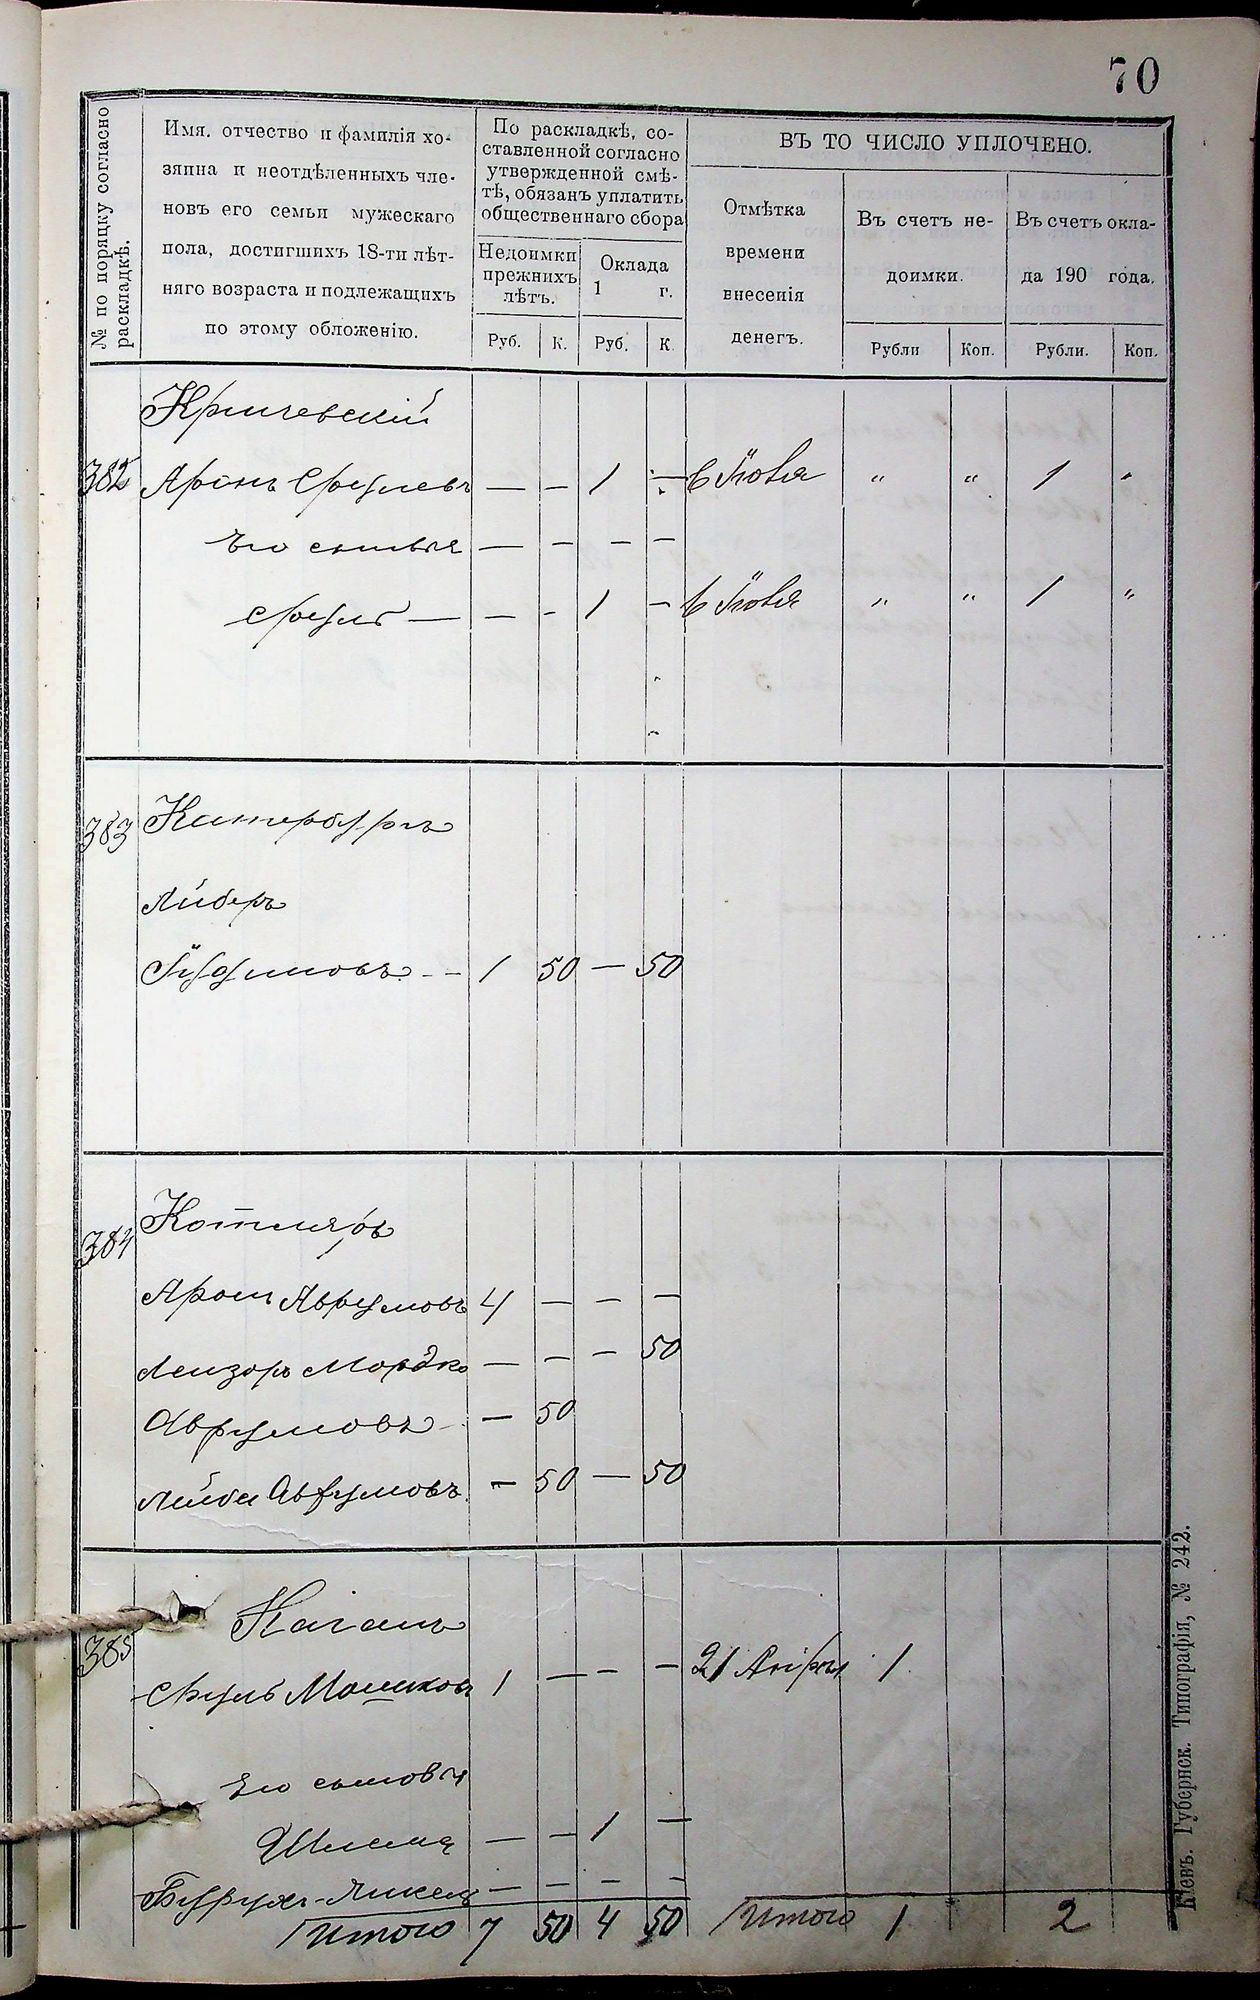 70
№ по поряцку согласно раскладкѣ.
Имя. отчество и фамилія хо-
зяина и неотдѣленныхъ чле-
новъ его семьи мужескаго
пола, достигшихъ 18-ти лѣт-
няго возраста и подлежащихъ
по этому обложенію.
По раскладкѣ, со-
ставленной согласно
утвержденной смѣ-
тѣ, обязанъ уплатить
общественнаго сбора
Недоимки
прежнихъ
лѣтъ.
Оклада
1 г.
Руб. К. Руб. К.
ВЪ ТО ЧИСЛО УПЛОЧЕНО.
Отмѣтка
времени
внесенія
денегъ.
Въ счетъ не-
доимки.
Въ счетъ окла-
да 190 года.
Рубли Коп. Рубли. Коп.
Кричевскій
382 Аронъ Срулевъ — — 1 — 6 Іюля " " 1 "
Его сыновья — — — —
Сруль — — - 1 — 6 Іюля " " 1 "
383 Катербургъ
Либеръ
Іудимовъ - - 1 50 — 50
384 Котляръ
Аронъ Аврумовъ 4 — — —
Лейзоръ Мордко — — — 50
Аврумовъ - — 50
Лейба Аврумовъ — 50 — 50
385 Каганъ
Сруль Мошковъ 1 — — — 21 Апрѣл 1
Его сыновья
Шлема — — 1 —
Бурухъ-Янкель — — — —
Итого 7 50 4 50 Итого 1 2
Кіевъ. Губернск. Типографія, № 242.